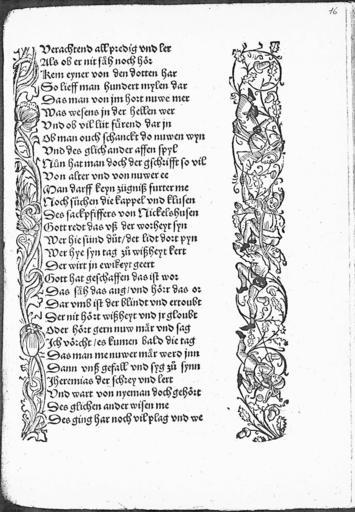 16
Verachtend all predig vnd ler
Als ob er nit säh noch hör
Kem eyner von den dotten har
So lieff man hundert mylen dar
Das man von jm hort nuwe mer
Was wesens jn der hellen wer
Vnd ob vil lüt fürend dar jn
Ob man ouch schanckt do nuwen wyn
Vnd des glich ander affen spyl
Nůn hat man doch der gschrifft so vil
Von alter vnd von nuwer ee
Man darff keyn zügniß furter me
Noch sůchen die kappel vnd klusen
Des sackpfiffers von Nickelshusen
Gott redt das vß der worheyt syn
Wer hie sünd důt / der lidt dort pyn
Wer hye syn tag zů wißheyt kert
Der wirt jn ewikeyt geert
Gott hat geschaffen das ist wor
Das säh das aug / vnd hört das or
Dar vmb ist der blindt vnd ertoubt
Der nit hört wißheyt vnd jr gloubt
Oder hört gern nuw mär vnd sag
Jch vörcht / es kumen bald die tag
Das man me nuwer mär werd jnn
Dann vnß gefall vnd syg zů synn
Jheremias der schrey vnd lert
Vnd wart von nyeman doch gehört
Des glichen ander wisen me
Des ging har noch vil plag vnd we